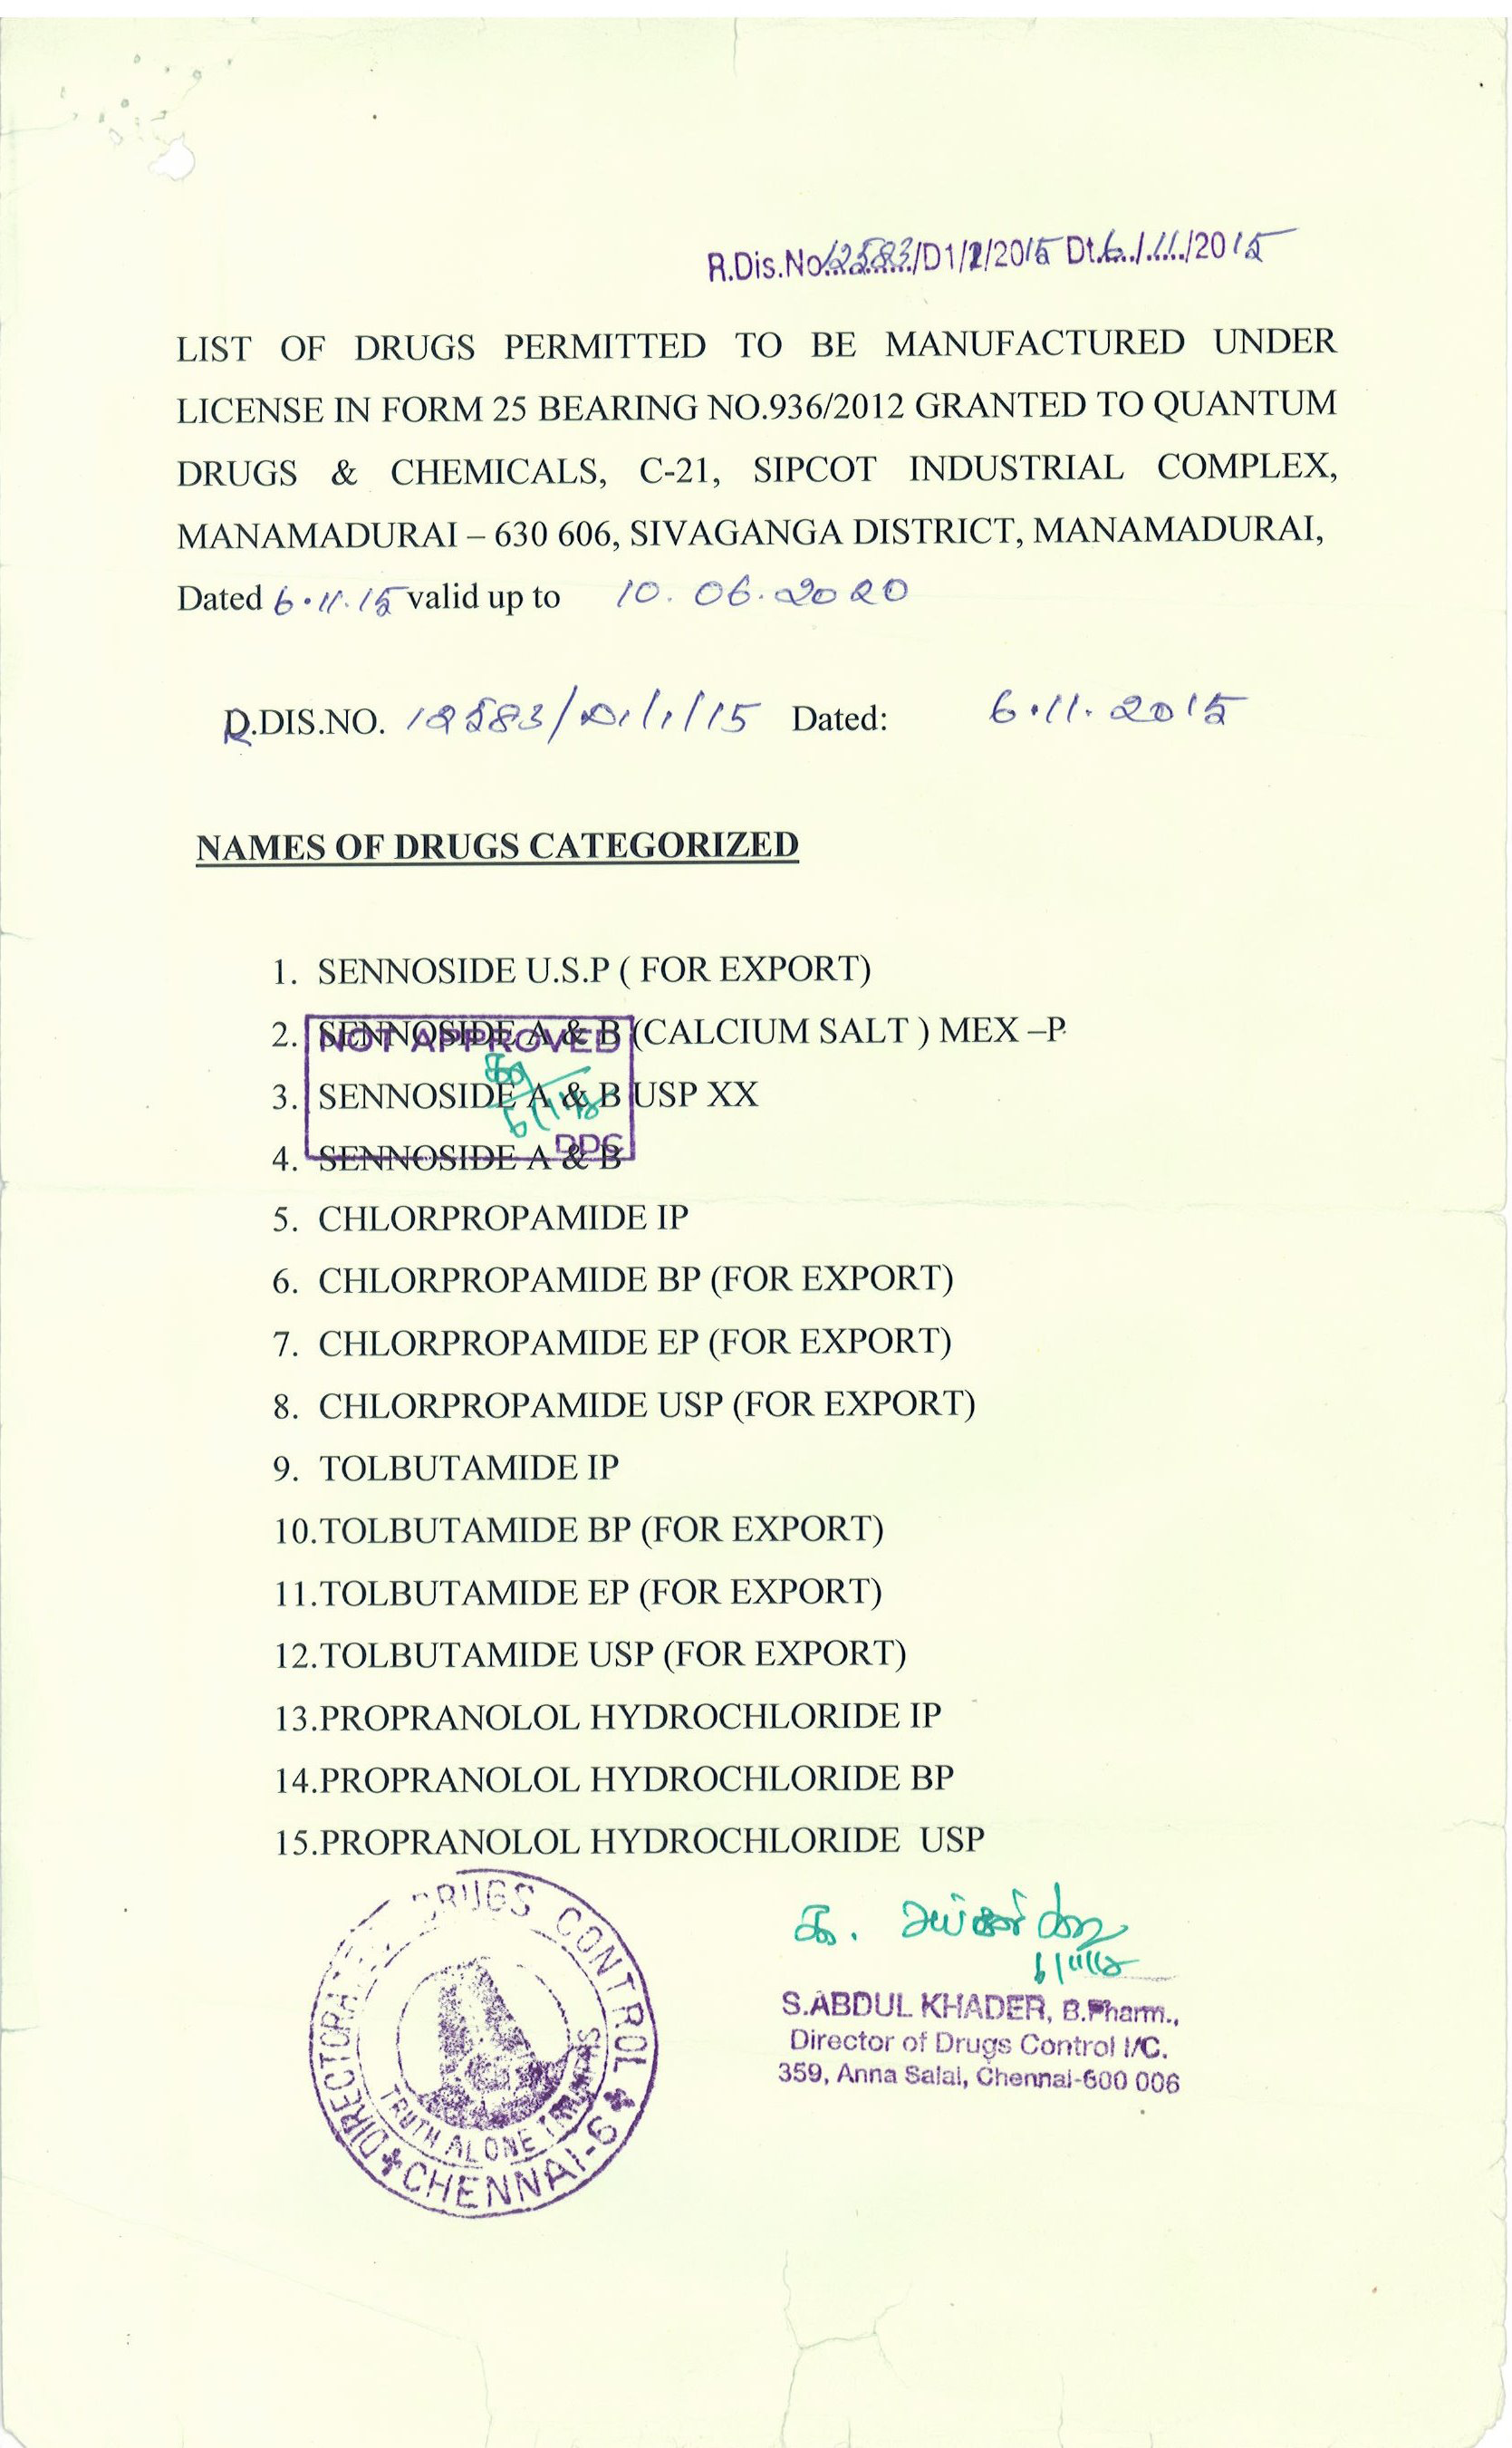 R.Dis.No.12583/D1/1/2015 Dt.6./.11./2015
LIST OF DRUGS PERMITTED TO BE MANUFACTURED UNDER
LICENSE IN FORM 25 BEARING NO.936/2012 GRANTED TO QUANTUM
DRUGS & CHEMICALS, C-21, SIPCOT INDUSTRIAL COMPLEX,
MANAMADURAI – 630 606, SIVAGANGA DISTRICT, MANAMADURAI,
Dated 6.11.15 valid up to 10.06.2020
R.DIS.NO. 12583/D1/1/15 Dated: 6.11.2015
NAMES OF DRUGS CATEGORIZED
1. SENNOSIDE U.S.P ( FOR EXPORT)
2. SENNOSIDE A & B (CALCIUM SALT ) MEX –P
NOT APPROVED
3. SENNOSIDE A & B USP XX
6/11/15
DDC
4. SENNOSIDE A & B
5. CHLORPROPAMIDE IP
6. CHLORPROPAMIDE BP (FOR EXPORT)
7. CHLORPROPAMIDE EP (FOR EXPORT)
8. CHLORPROPAMIDE USP (FOR EXPORT)
9. TOLBUTAMIDE IP
10.TOLBUTAMIDE BP (FOR EXPORT)
11.TOLBUTAMIDE EP (FOR EXPORT)
12.TOLBUTAMIDE USP (FOR EXPORT)
13.PROPRANOLOL HYDROCHLORIDE IP
14.PROPRANOLOL HYDROCHLORIDE BP
15.PROPRANOLOL HYDROCHLORIDE USP
DIRECTORATE DRUGS CONTROL
TRUTH ALONE TRIUMPHS
CHENNAI-6
6/11/15
S.ABDUL KHADER, B.Pharm.,
Director of Drugs Control I/C.
359, Anna Salai, Chennai-600 006